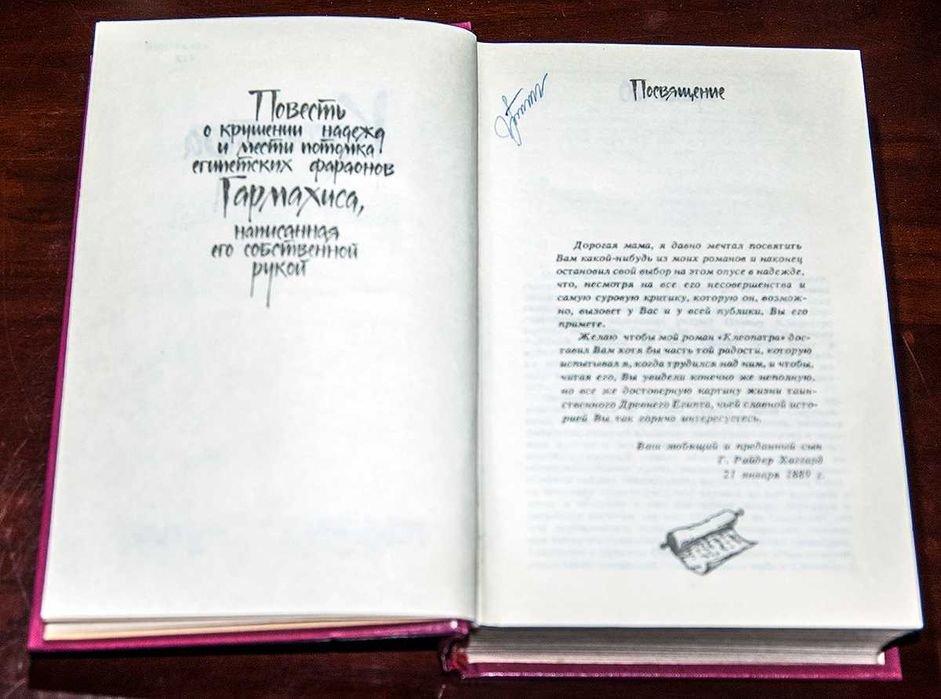 Повесть
о крушении надежд
и мести потомка
египетских фараонов
Гармахиса,
написанная
его собственной
рукой
Посвящение
Дорогая мама, я давно мечтал посвятить
Вам какой-нибудь из моих романов и наконец
остановил свой выбор на этом опусе в надежде,
что, несмотря на все его несовершенства и
самую суровую критику, которую он, возмож-
но, вызовет у Вас и у всей публики, Вы его
примете.
Желаю чтобы мой роман «Клеопатра» дос-
тавил Вам хотя бы часть той радости, которую
испытывал я, когда трудился над ним, и чтобы,
читая его, Вы увидели конечно же неполную,
но все же достоверную картину жизни таин-
ственного Древнего Египта, чьей славной исто-
рией Вы так горячо интересуетесь.
Ваш любящий и преданный сын
Г. Райдер Хаггард
21 января 1889 г.